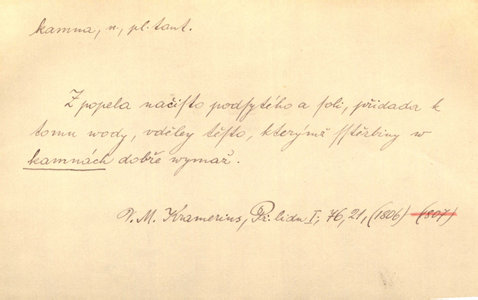 kamna, n, pl. tant.
Z popela načisto podsytého a soli, přidada k
tomu wody, vděley těsto, kterýmž sstěrbiny w
kamnách dobře wymaž.
V. M. Kramerius, Př. lidu I, 76, 21, (1806) (1807)